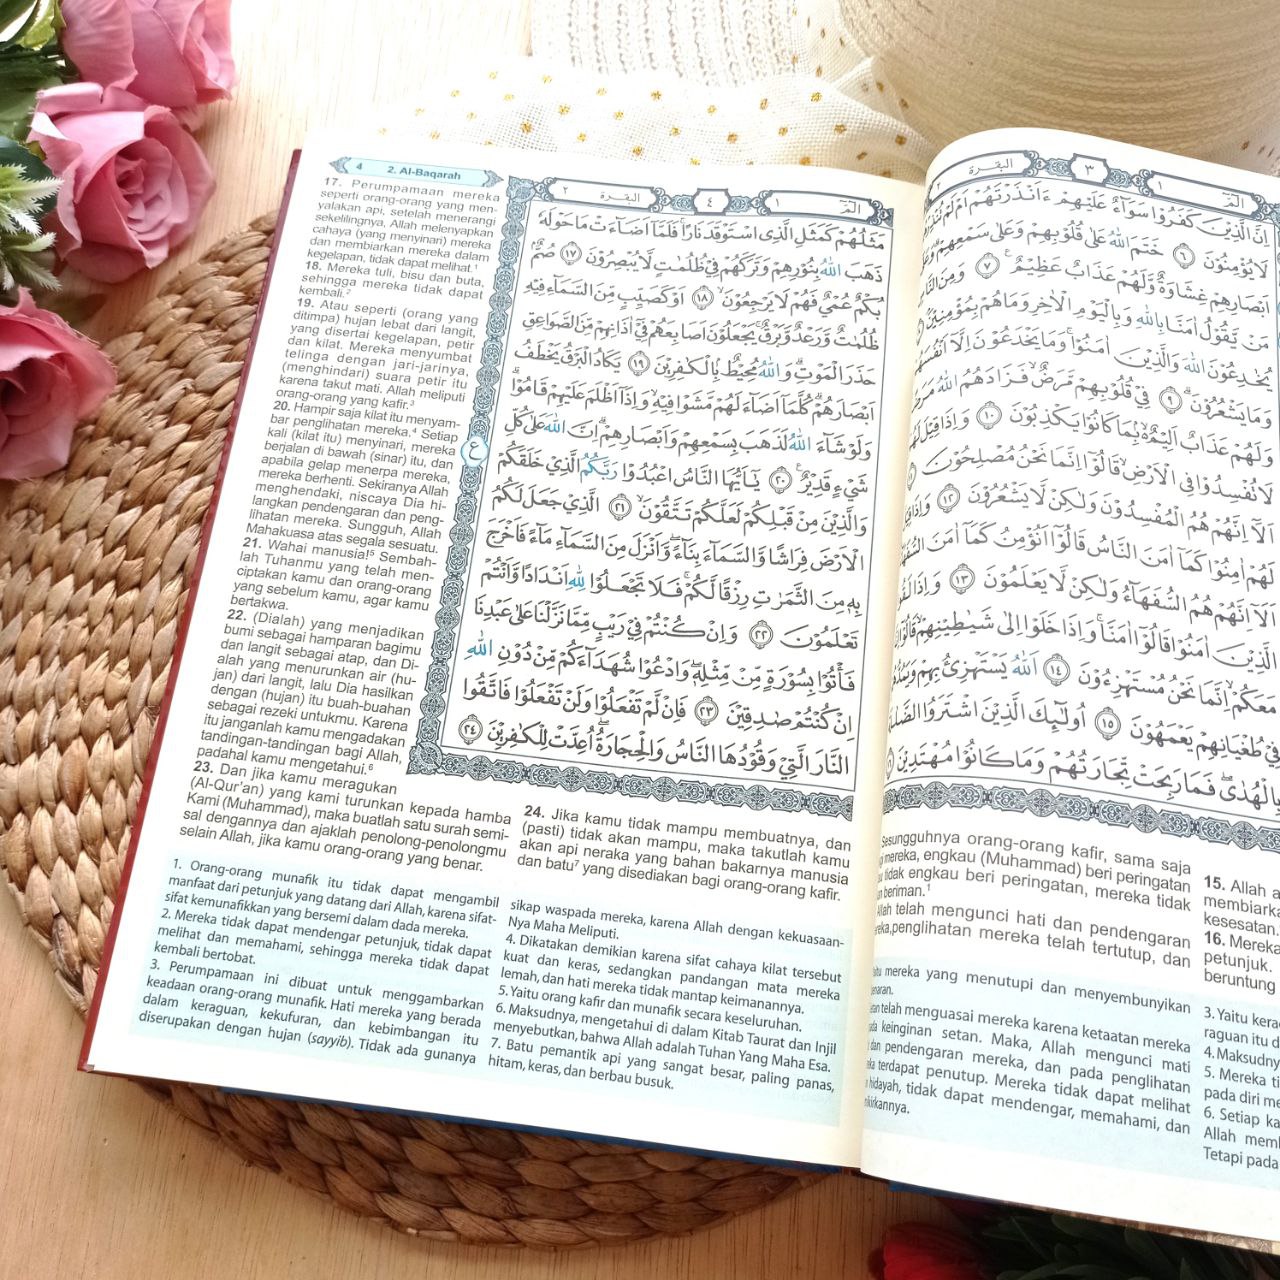 4 2. Al-Baqarah
17. Perumpamaan mereka
seperti orang-orang yang men-
yalakan api, setelah menerangi
sekelilingnya, Allah melenyapkan
cahaya (yang menyinari) mereka
dan membiarkan mereka dalam
kegelapan, tidak dapat melihat.¹
18. Mereka tuli, bisu dan buta,
sehingga mereka tidak dapat
kembali.²
19. Atau seperti (orang yang
ditimpa) hujan lebat dari langit,
yang disertai kegelapan, petir
dan kilat. Mereka menyumbat
telinga dengan jari-jarinya,
(menghindari) suara petir itu
karena takut mati. Allah meliputi
orang-orang yang kafir.³
20. Hampir saja kilat itu menyam-
bar penglihatan mereka.⁴ Setiap
kali (kilat itu) menyinari, mereka
berjalan di bawah (sinar) itu, dan
apabila gelap menerpa mereka,
mereka berhenti. Sekiranya Allah
menghendaki, niscaya Dia hi-
langkan pendengaran dan peng-
lihatan mereka. Sungguh, Allah
Mahakuasa atas segala sesuatu.
21. Wahai manusia!⁵ Sembah-
lah Tuhanmu yang telah men-
ciptakan kamu dan orang-orang
yang sebelum kamu, agar kamu
bertakwa.
22. (Dialah) yang menjadikan
bumi sebagai hamparan bagimu
dan langit sebagai atap, dan Di-
alah yang menurunkan air (hu-
jan) dari langit, lalu Dia hasilkan
dengan (hujan) itu buah-buahan
sebagai rezeki untukmu. Karena
itu janganlah kamu mengadakan
tandingan-tandingan bagi Allah,
padahal kamu mengetahui.⁶
23. Dan jika kamu meragukan
(Al-Qur'an) yang kami turunkan kepada hamba
Kami (Muhammad), maka buatlah satu surah semi-
sal dengannya dan ajaklah penolong-penolongmu
selain Allah, jika kamu orang-orang yang benar.
الۤمّۤ ١ ٤ البقرة ٢
مَثَلُهُمْ كَمَثَلِ الَّذِى اسْتَوْقَدَ نَارًا ۚ فَلَمَّآ اَضَاۤءَتْ مَا حَوْلَهٗ
ذَهَبَ اللّٰهُ بِنُوْرِهِمْ وَتَرَكَهُمْ فِيْ ظُلُمٰتٍ لَّا يُبْصِرُوْنَ ١٧ صُمٌّۢ
بُكْمٌ عُمْيٌ فَهُمْ لَا يَرْجِعُوْنَ ۙ ١٨ اَوْ كَصَيِّبٍ مِّنَ السَّمَاۤءِ فِيْهِ
ظُلُمٰتٌ وَّرَعْدٌ وَّبَرْقٌ ۚ يَجْعَلُوْنَ اَصَابِعَهُمْ فِيْٓ اٰذَانِهِمْ مِّنَ الصَّوَاعِقِ
حَذَرَ الْمَوْتِ ۗ وَاللّٰهُ مُحِيْطٌۢ بِالْكٰفِرِيْنَ ١٩ يَكَادُ الْبَرْقُ يَخْطَفُ
اَبْصَارَهُمْ ۗ كُلَّمَآ اَضَاۤءَ لَهُمْ مَّشَوْا فِيْهِ ۙ وَاِذَآ اَظْلَمَ عَلَيْهِمْ قَامُوْا ۗ
وَلَوْ شَاۤءَ اللّٰهُ لَذَهَبَ بِسَمْعِهِمْ وَاَبْصَارِهِمْ ۗ اِنَّ اللّٰهَ عَلٰى كُلِّ
شَيْءٍ قَدِيْرٌ ࣖ ٢٠ يٰٓاَيُّهَا النَّاسُ اعْبُدُوْا رَبَّكُمُ الَّذِيْ خَلَقَكُمْ
وَالَّذِيْنَ مِنْ قَبْلِكُمْ لَعَلَّكُمْ تَتَّقُوْنَ ۙ ٢١ الَّذِيْ جَعَلَ لَكُمُ
الْاَرْضَ فِرَاشًا وَّالسَّمَاۤءَ بِنَاۤءً ۖ وَّاَنْزَلَ مِنَ السَّمَاۤءِ مَاۤءً فَاَخْرَجَ
بِهٖ مِنَ الثَّمَرٰتِ رِزْقًا لَّكُمْ ۚ فَلَا تَجْعَلُوْا لِلّٰهِ اَنْدَادًا وَّاَنْتُمْ
تَعْلَمُوْنَ ٢٢ وَاِنْ كُنْتُمْ فِيْ رَيْبٍ مِّمَّا نَزَّلْنَا عَلٰى عَبْدِنَا
فَأْتُوْا بِسُوْرَةٍ مِّنْ مِّثْلِهٖ ۖ وَادْعُوْا شُهَدَاۤءَكُمْ مِّنْ دُوْنِ اللّٰهِ
اِنْ كُنْتُمْ صٰدِقِيْنَ ٢٣ فَاِنْ لَّمْ تَفْعَلُوْا وَلَنْ تَفْعَلُوْا فَاتَّقُوا
النَّارَ الَّتِيْ وَقُوْدُهَا النَّاسُ وَالْحِجَارَةُ ۖ اُعِدَّتْ لِلْكٰفِرِيْنَ ٢٤
ع
24. Jika kamu tidak mampu membuatnya, dan
(pasti) tidak akan mampu, maka takutlah kamu
akan api neraka yang bahan bakarnya manusia
dan batu⁷ yang disediakan bagi orang-orang kafir.
1. Orang-orang munafik itu tidak dapat mengambil
manfaat dari petunjuk yang datang dari Allah, karena sifat-
sifat kemunafikkan yang bersemi dalam dada mereka.
2. Mereka tidak dapat mendengar petunjuk, tidak dapat
melihat dan memahami, sehingga mereka tidak dapat
kembali bertobat.
3. Perumpamaan ini dibuat untuk menggambarkan
keadaan orang-orang munafik. Hati mereka yang berada
dalam keraguan, kekufuran, dan kebimbangan itu
diserupakan dengan hujan (sayyib). Tidak ada gunanya
sikap waspada mereka, karena Allah dengan kekuasaan-
Nya Maha Meliputi.
4. Dikatakan demikian karena sifat cahaya kilat tersebut
kuat dan keras, sedangkan pandangan mata mereka
lemah, dan hati mereka tidak mantap keimanannya.
5. Yaitu orang kafir dan munafik secara keseluruhan.
6. Maksudnya, mengetahui di dalam Kitab Taurat dan Injil
menyebutkan, bahwa Allah adalah Tuhan Yang Maha Esa.
7. Batu pemantik api yang sangat besar, paling panas,
hitam, keras, dan berbau busuk.
الۤمّۤ ١ ٣ البقرة ٢
اِنَّ الَّذِيْنَ كَفَرُوْا سَوَاۤءٌ عَلَيْهِمْ ءَاَنْذَرْتَهُمْ اَمْ لَمْ
لَا يُؤْمِنُوْنَ ٦ خَتَمَ اللّٰهُ عَلٰى قُلُوْبِهِمْ وَعَلٰى سَمْعِهِمْ ۗ
اَبْصَارِهِمْ غِشَاوَةٌ وَّلَهُمْ عَذَابٌ عَظِيْمٌ ࣖ ٧ وَمِنَ
مَنْ يَّقُوْلُ اٰمَنَّا بِاللّٰهِ وَبِالْيَوْمِ الْاٰخِرِ وَمَا هُمْ بِمُؤْمِنِيْنَ
يُخٰدِعُوْنَ اللّٰهَ وَالَّذِيْنَ اٰمَنُوْا ۚ وَمَا يَخْدَعُوْنَ اِلَّآ
وَمَا يَشْعُرُوْنَ ۗ ٩ فِيْ قُلُوْبِهِمْ مَّرَضٌ ۙ فَزَادَهُمُ اللّٰهُ
وَلَهُمْ عَذَابٌ اَلِيْمٌ ۢ ەۙ بِمَا كَانُوْا يَكْذِبُوْنَ ١٠ وَاِذَا قِيْلَ
لَا تُفْسِدُوْا فِى الْاَرْضِ ۙ قَالُوْٓا اِنَّمَا نَحْنُ مُصْلِحُوْنَ
اَلَآ اِنَّهُمْ هُمُ الْمُفْسِدُوْنَ وَلٰكِنْ لَّا يَشْعُرُوْنَ ١٢
لَهُمْ اٰمِنُوْا كَمَآ اٰمَنَ النَّاسُ قَالُوْٓا اَنُؤْمِنُ كَمَآ اٰمَنَ
اَلَآ اِنَّهُمْ هُمُ السُّفَهَاۤءُ وَلٰكِنْ لَّا يَعْلَمُوْنَ ١٣ وَاِذَا
الَّذِيْنَ اٰمَنُوْا قَالُوْٓا اٰمَنَّا ۚ وَاِذَا خَلَوْا اِلٰى شَيٰطِيْنِهِمْ ۙ
مَعَكُمْ ۙ اِنَّمَا نَحْنُ مُسْتَهْزِءُوْنَ ١٤ اَللّٰهُ يَسْتَهْزِئُ بِهِمْ
فِيْ طُغْيَانِهِمْ يَعْمَهُوْنَ ١٥ اُولٰۤىِٕكَ الَّذِيْنَ اشْتَرَوُا
بِالْهُدٰى ۖ فَمَا رَبِحَتْ تِّجَارَتُهُمْ وَمَا كَانُوْا مُهْتَدِيْنَ
Sesungguhnya orang-orang kafir, sama saja
mereka, engkau (Muhammad) beri peringatan
tidak engkau beri peringatan, mereka tidak
beriman.¹
Allah telah mengunci hati dan pendengaran
penglihatan mereka telah tertutup, dan
15. Allah
membiarka
kesesatan.
16. Mereka
petunjuk.
beruntung
mereka yang menutupi dan menyembunyikan
telah menguasai mereka karena ketaatan mereka
keinginan setan. Maka, Allah mengunci mati
dan pendengaran mereka, dan pada penglihatan
terdapat penutup. Mereka tidak dapat melihat
hidayah, tidak dapat mendengar, memahami, dan
3. Yaitu
raguan itu
4. Maksudny
5. Mereka
pada diri
6. Setiap
Allah
Tetapi pada